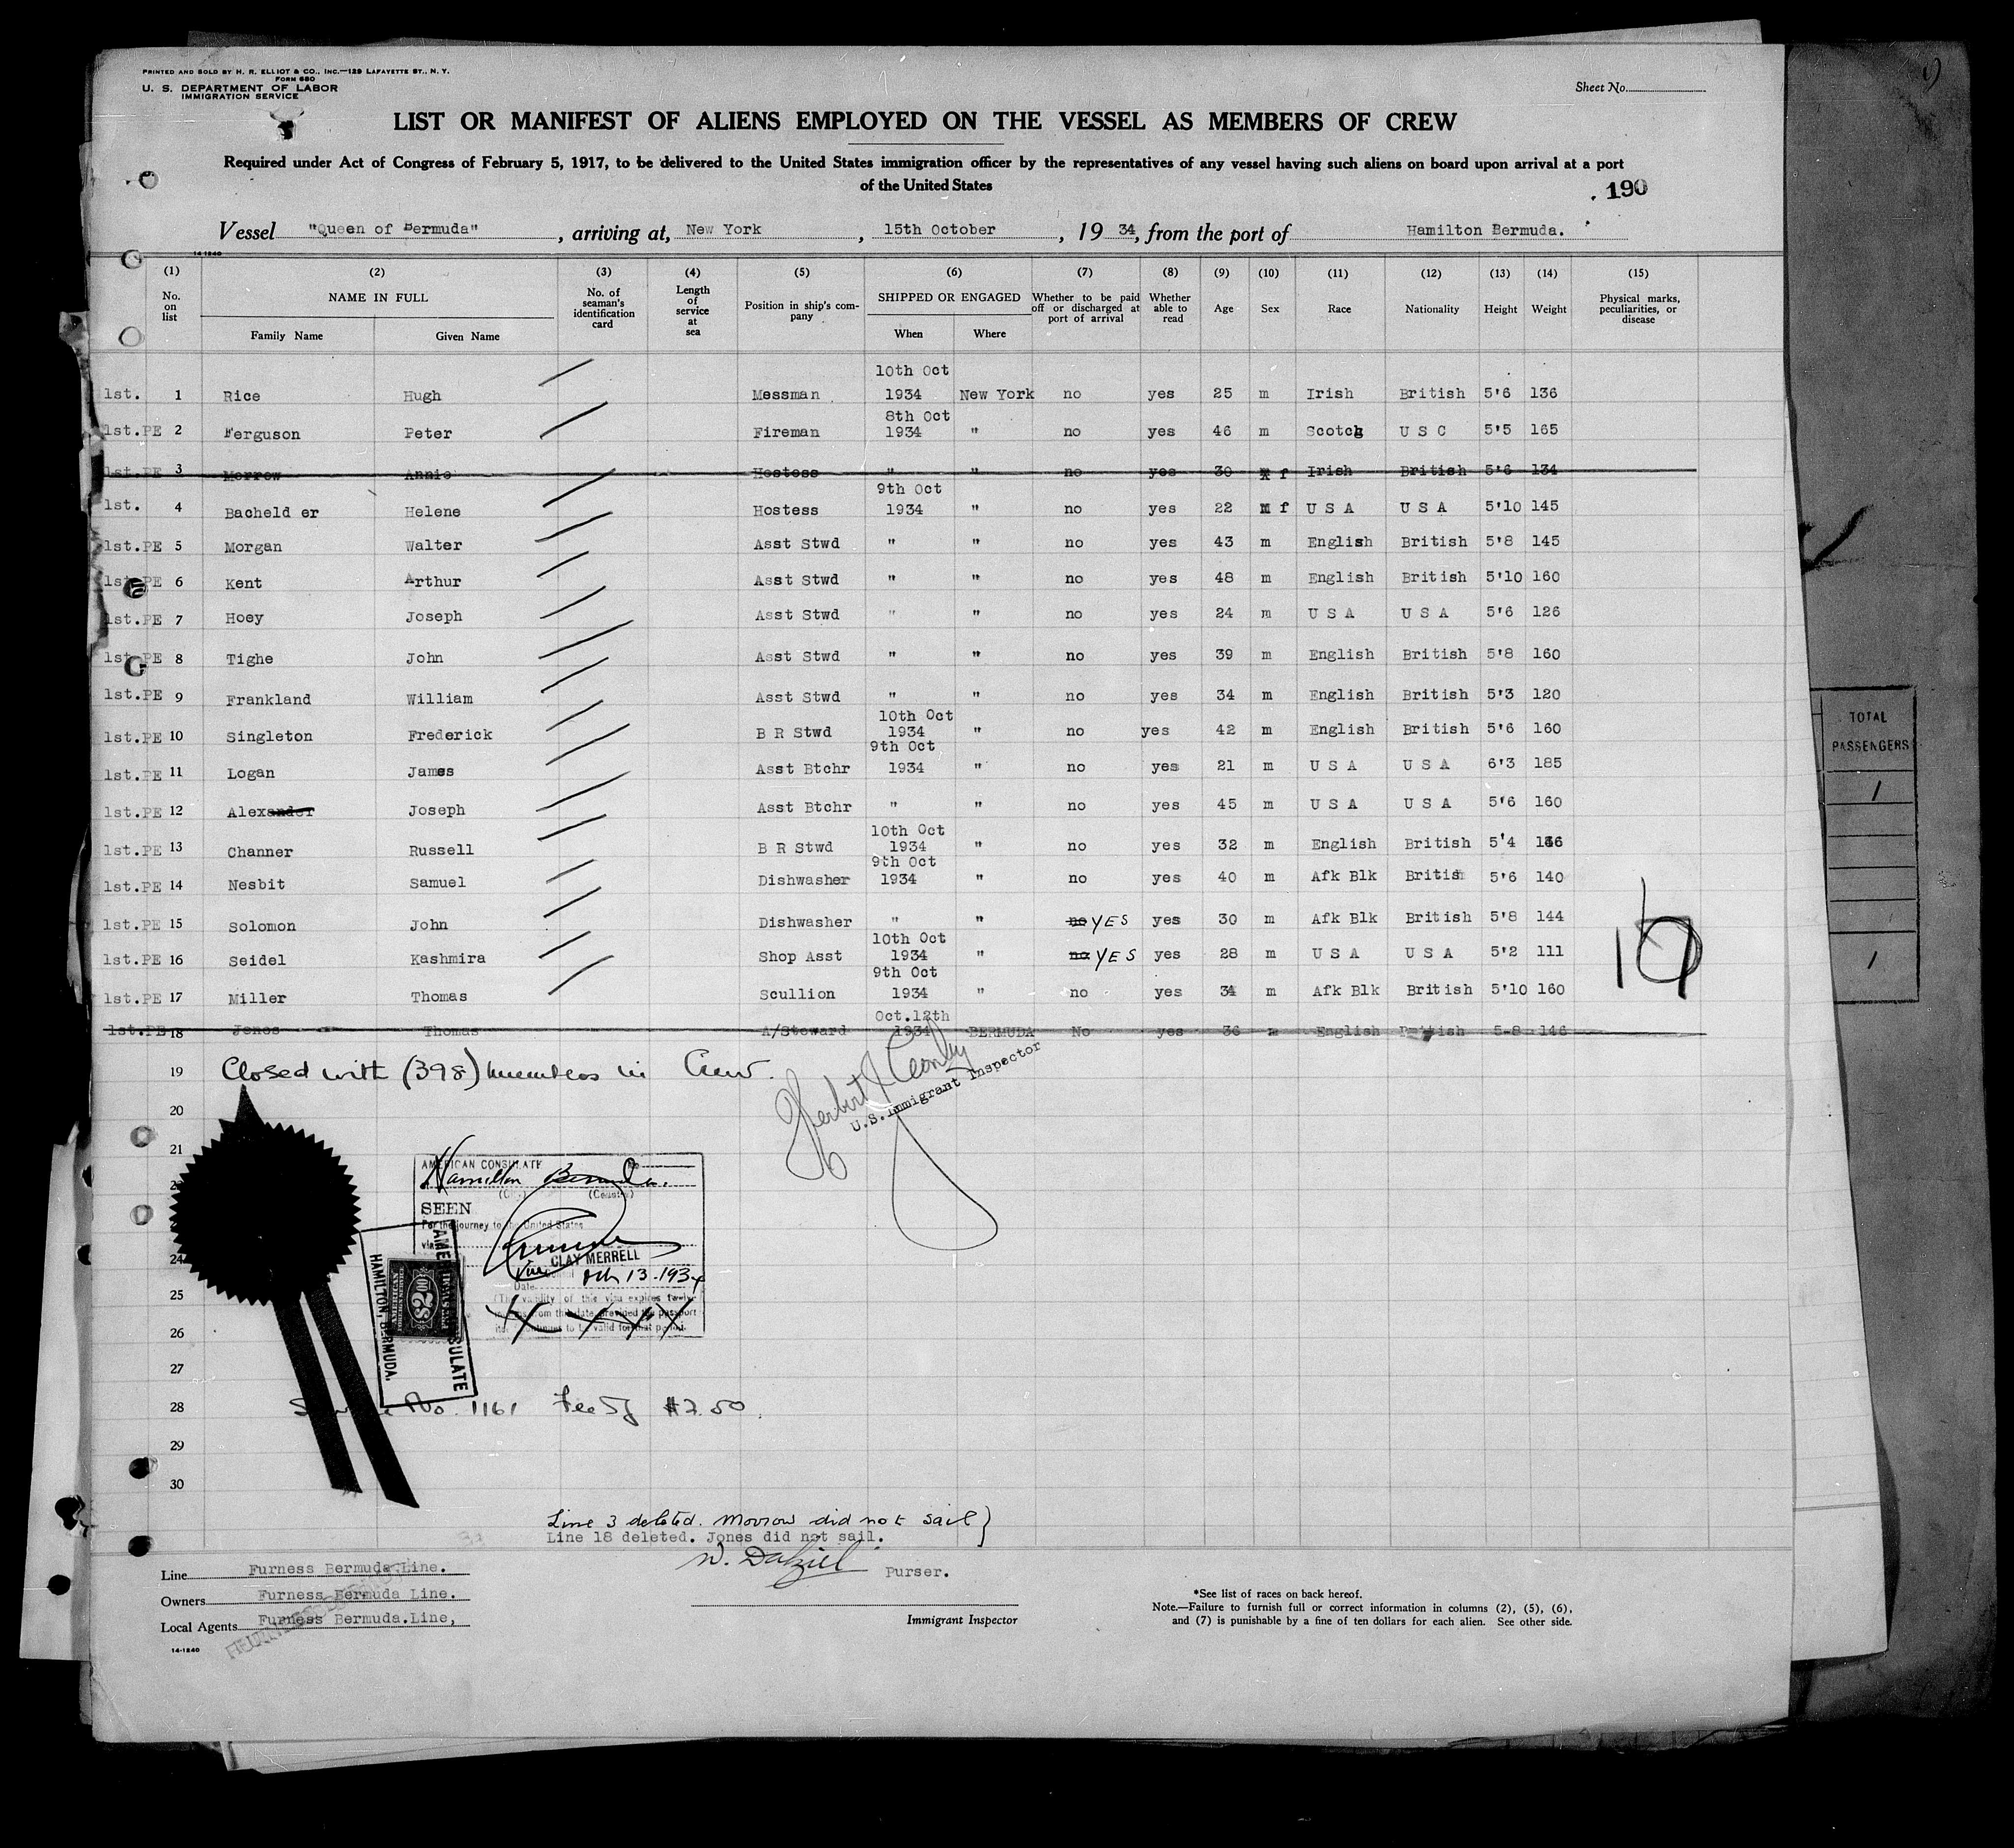 PRINTED AND SOLD BY H. R. ELLIOT & CO., INC.—129 LAFAYETTE ST., N. Y.
FORM 680
U. S. DEPARTMENT OF LABOR
IMMIGRATION SERVICE
Sheet No.
LIST OR MANIFEST OF ALIENS EMPLOYED ON THE VESSEL AS MEMBERS OF CREW
Required under Act of Congress of February 5, 1917, to be delivered to the United States immigration officer by the representatives of any vessel having such aliens on board upon arrival at a port
of the United States
190
Vessel "Queen of Bermuda", arriving at, New York, 15th October, 19 34, from the port of Hamilton Bermuda.
14-1240
(1) (2) (3) (4) (5) (6) (7) (8) (9) (10) (11) (12) (13) (14) (15)
No. on list NAME IN FULL Family Name Given Name No. of seaman's identification card Length of service at sea Position in ship's company SHIPPED OR ENGAGED When Where Whether to be paid off or discharged at port of arrival Whether able to read Age Sex Race Nationality Height Weight Physical marks, peculiarities, or disease
1st. 1 Rice Hugh Messman 10th Oct 1934 New York no yes 25 m Irish British 5'6 136
1st.PE 2 Ferguson Peter Fireman 8th Oct 1934 " no yes 46 m Scotch U S C 5'5 165
1st.PE 3 Morrow Annie Hostess " " no yes 30 f Irish British 5'6 134
1st. 4 Bacheld er Helene Hostess 9th Oct 1934 " no yes 22 f U S A U S A 5'10 145
1st.PE 5 Morgan Walter Asst Stwd " " no yes 43 m English British 5'8 145
1st.PE 6 Kent Arthur Asst Stwd " " no yes 48 m English British 5'10 160
1st.PE 7 Hoey Joseph Asst Stwd " " no yes 24 m U S A U S A 5'6 126
1st.PE 8 Tighe John Asst Stwd " " no yes 39 m English British 5'8 160
1st.PE 9 Frankland William Asst Stwd " " no yes 34 m English British 5'3 120
1st.PE 10 Singleton Frederick B R Stwd 10th Oct 1934 " no yes 42 m English British 5'6 160
1st.PE 11 Logan James Asst Btchr 9th Oct 1934 " no yes 21 m U S A U S A 6'3 185
1st.PE 12 Alexander Joseph Asst Btchr " " no yes 45 m U S A U S A 5'6 160
1st.PE 13 Channer Russell B R Stwd 10th Oct 1934 " no yes 32 m English British 5'4
1st.PE 14 Nesbit Samuel Dishwasher 9th Oct 1934 " no yes 40 m Afk Blk British 5'6 140
1st.PE 15 Solomon John Dishwasher " " no YES yes 30 m Afk Blk British 5'8 144
1st.PE 16 Seidel Kashmira Shop Asst 10th Oct 1934 " no YES yes 28 m U S A U S A 5'2 111
1st.PE 17 Miller Thomas Scullion 9th Oct 1934 " no yes 34 m Afk Blk British 5'10 160
1st.PE 18 Jones Thomas A/Steward Oct.12th 1934 BERMUDA No yes 36 m English British 5-8 146
19 Closed with (398) members in Crew.
U.S. Immigrant Inspector
20
21
24
25
26
27
28
29
30
AMERICAN CONSULATE
No
Hamilton Bermuda.
(City) (Country)
SEEN
For the journey to the United States
via
CLAY MERRELL
Vice Consul
Date Oct 13-1934
(The validity of this visa expires twelve
months from this date provided the passport
itself continues to be valid for that period.
AMERICAN CONSULATE
HAMILTON, BERMUDA.
AMERICAN
$2.00
Service No. 1161 Fee $2.50.
Line 3 deleted. Morrow did not sail
Line 18 deleted. Jones did not sail.
W. Dalziel
Purser.
Immigrant Inspector
Line Furness Bermuda Line.
Owners Furness Bermuda Line.
Local Agents Furness Bermuda Line,
14-1240
*See list of races on back hereof.
Note.—Failure to furnish full or correct information in columns (2), (5), (6),
and (7) is punishable by a fine of ten dollars for each alien. See other side.
TOTAL
PASSENGERS
1
1